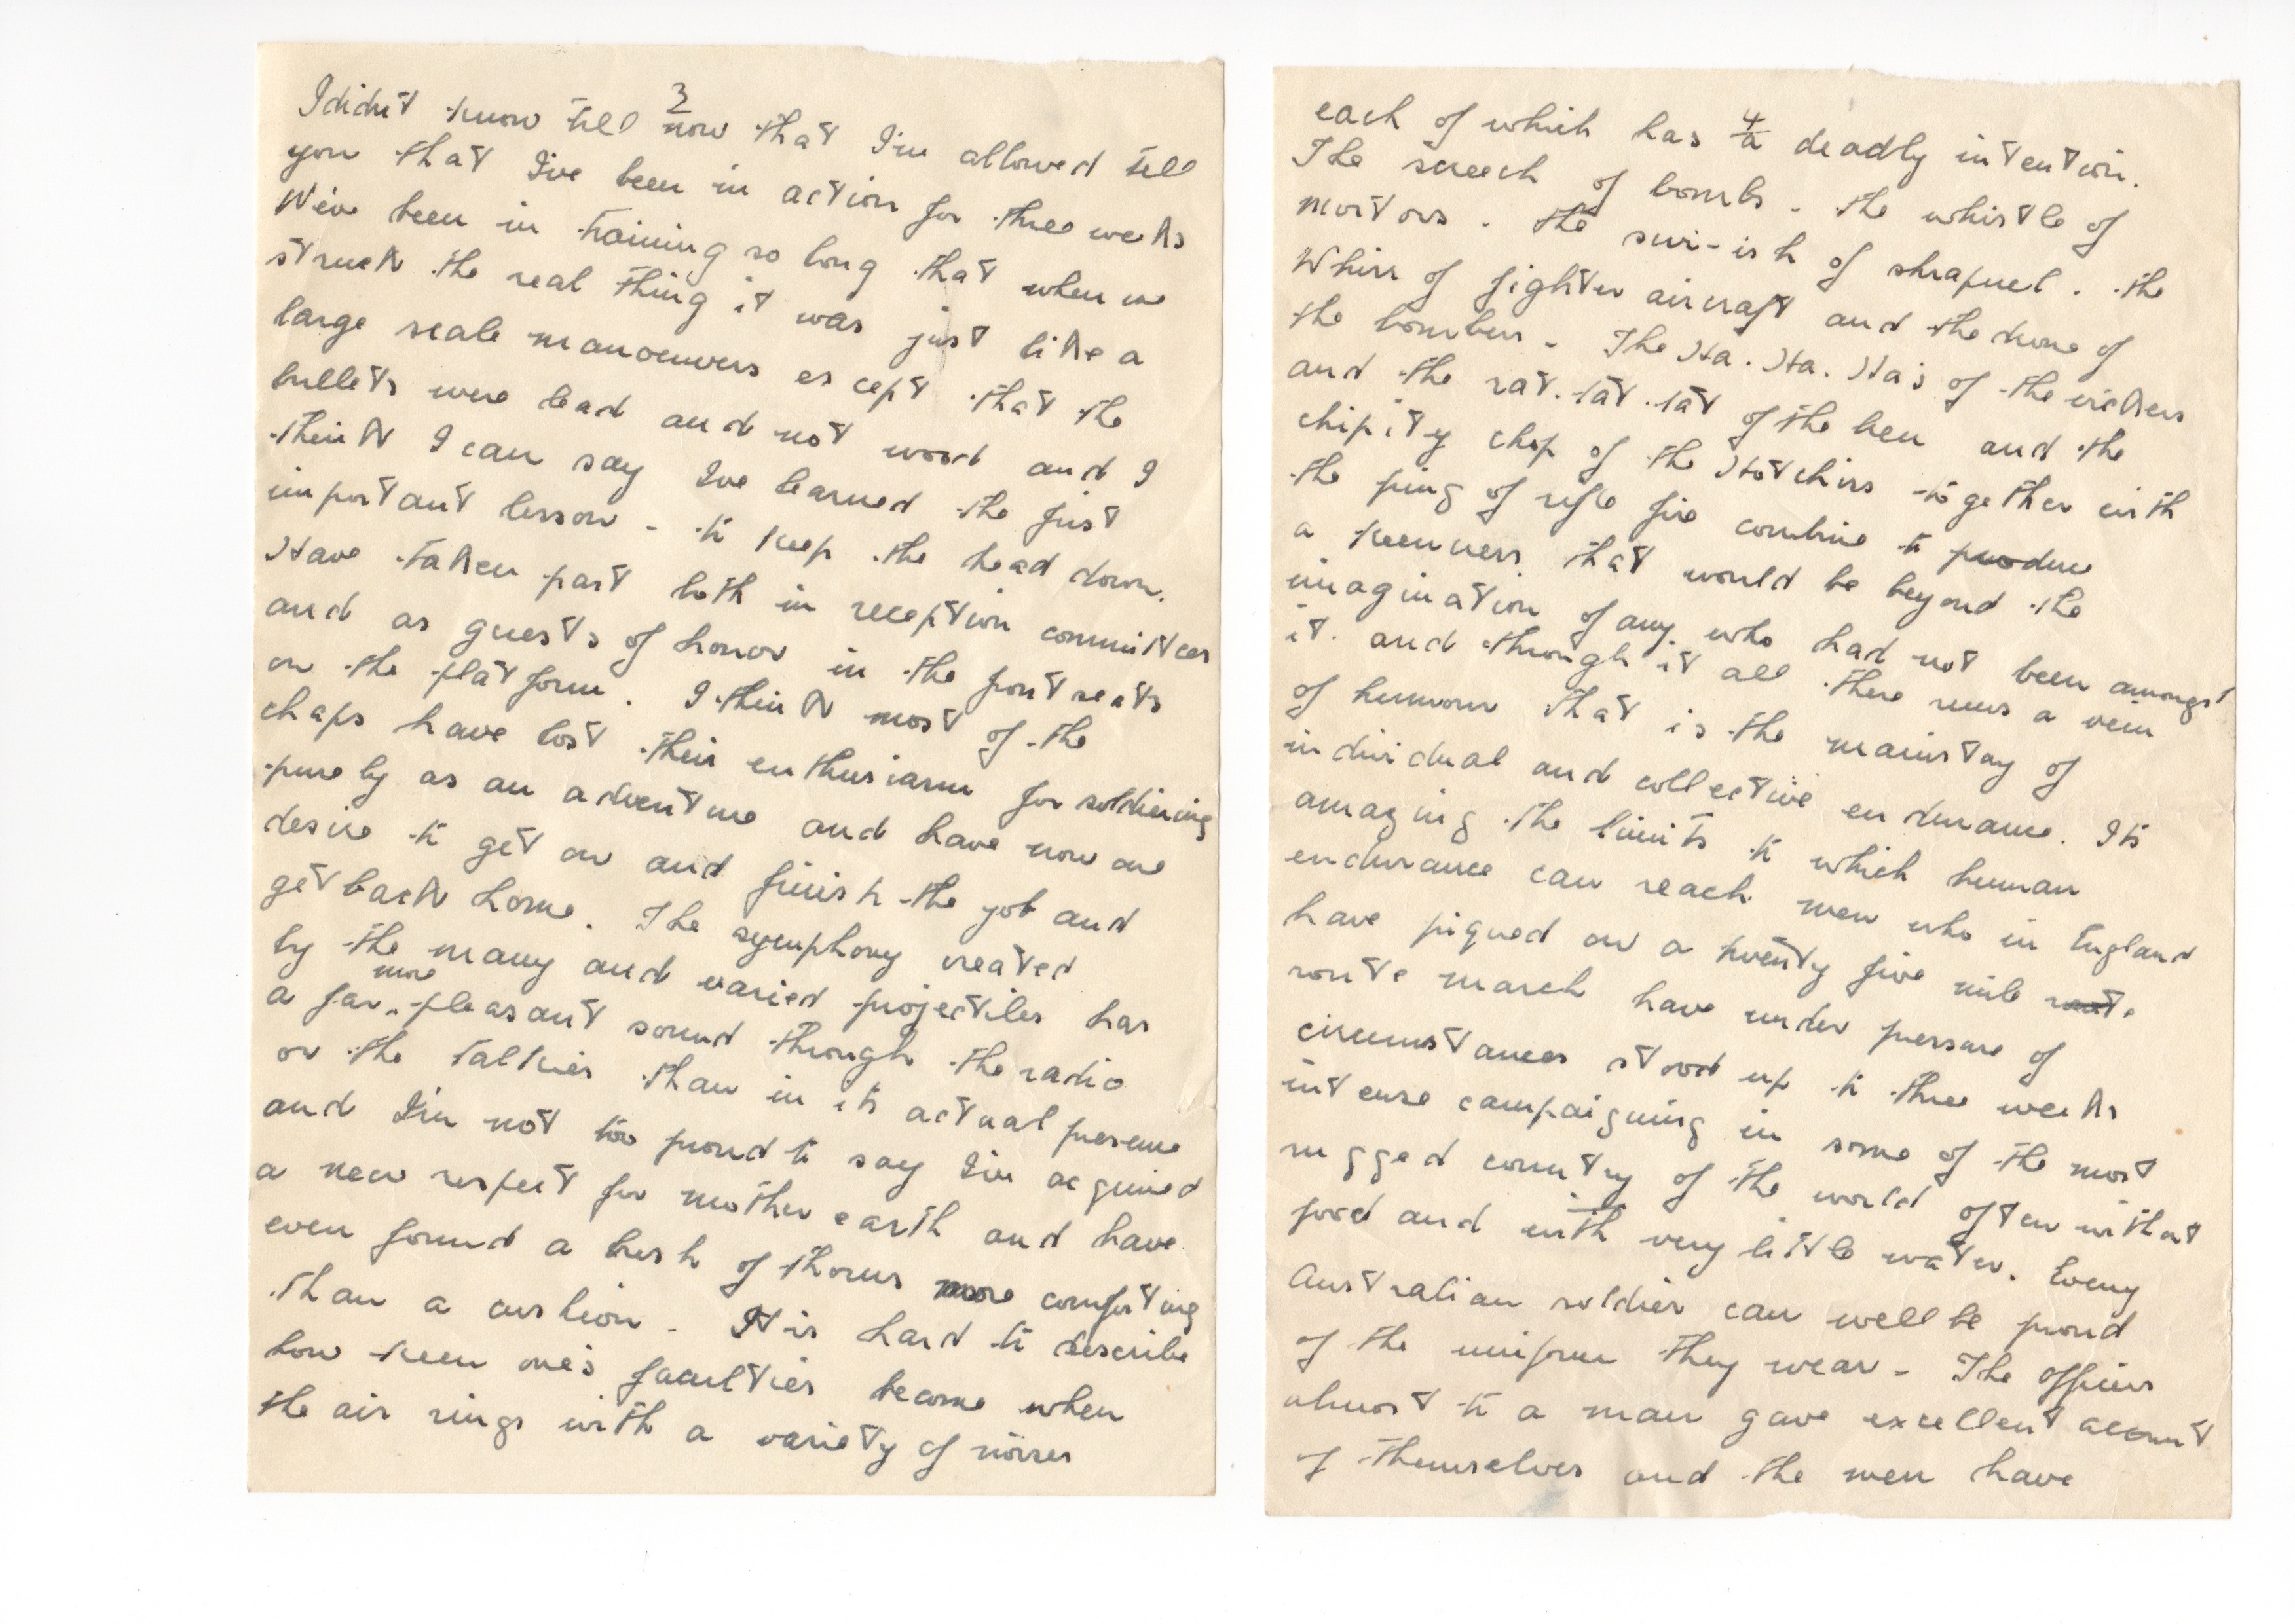 3
I didn't know till now that I'm allowed tell
you that I've been in action for three weeks
We've been in training so long that when we
struck the real thing it was just like a
large scale manoeuvers except that the
bullets were lead and not wood and I
think I can say I've learned the first
important lesson - to keep the head down.
Have taken part both in reception committees
and as guests of honor in the front seats
on the platform. I think most of the
chaps have lost their enthusiasm for soldiering
purely as an adventure and have now one
desire to get on and finish the job and
get back home. The symphony created
by the many and varied projectiles has
a far more pleasant sound through the radio
or the talkies than in its actual presence
and I'm not too proud to say I've acquired
a new respect for mother earth and have
even found a bush of thorns more comforting
than a cushion - It is hard to describe
how keen one's faculties become when
the air rings with a variety of noises
4
each of which has a deadly intention.
The screech of bombs - the whistle of
mortors - the swi-ish of shrapnel. the
Whirr of fighter aircraft and the drone of
the bombers - The Ha. Ha. Ha's of the vickers
and the rat.tat.tat of the bren and the
chipity chop of the Hotchiss together with
the ping of rifle fire combine to produce
a keenness that would be beyond the
imagination of any who had not been amongst
it. and through it all there runs a vein
of humour that is the mainstay of
individual and collective endurance. Its
amazing the limits to which human
endurance can reach men who in England
have piqued on a twenty five mile route
route march have under pressure of
circumstances stood up to three weeks
intense campaigning in some of the most
rugged country of the world often without
food and with very little water. Every
Australian soldier can well be proud
of the uniform they wear - The officers
almost to a man gave excellent account
of themselves and the men have